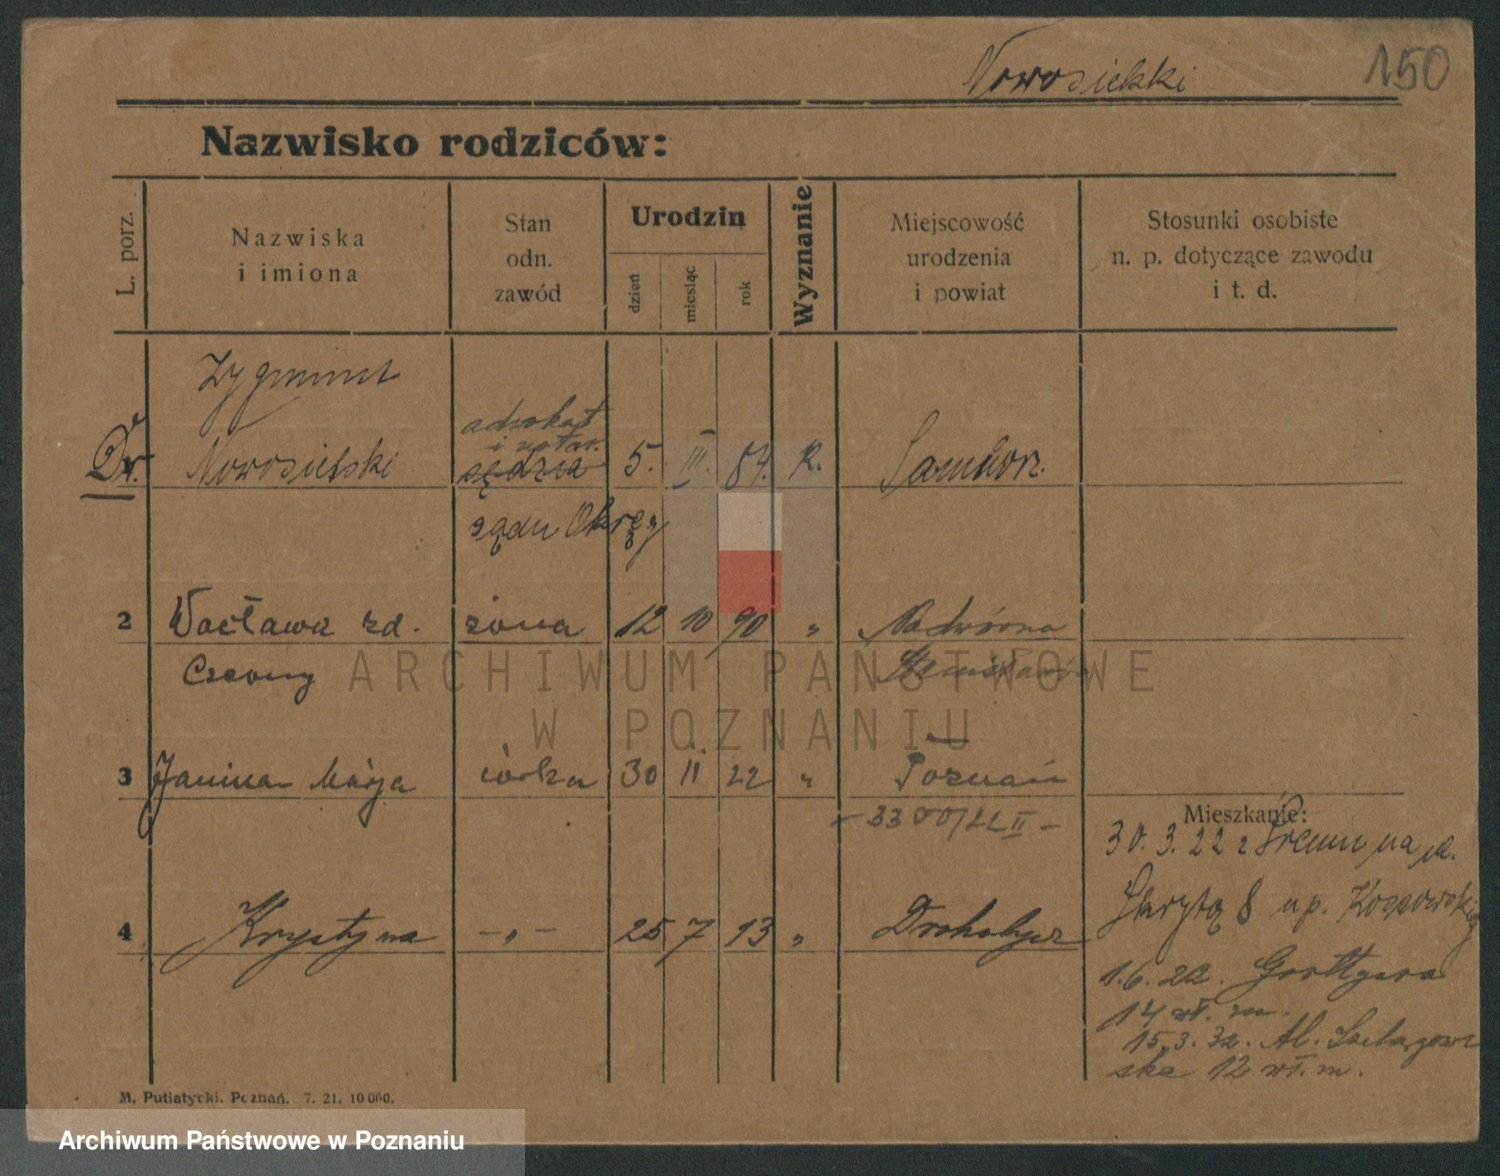 Nowosielski
150
Nazwisko rodziców:
L. porz.
Nazwiska
i imiona
Stan
odn.
zawód
Urodzin
dzień
miesiąc
rok
Wyznanie
Miejscowość
urodzenia
i powiat
Stosunki osobiste
n. p. dotyczące zawodu
i t. d.
Zygmunt
adwokat
i notar.
Dr. Nowosielski sędzia 5. III. 84. R. Sambor.
sądu Okręg
2 Wacława zd. żona 12 10 90 " Nadwórna
Czerny Stanisławów
3 Janina Marja córka 30 11 22 " Poznań
- 3300/22 II -
Mieszkanie:
30.3.22 z Śremu na ul.
8 up.
4 Krystyna - " - 25 7 13 " Drohobycz
1.6.22. Grottgera
14 wł. m.
15.3.32. Al. Szelągow
ska 12 wł. m.
M. Putiatycki. Poznań. 7. 21. 10 000.
ARCHIWUM PAŃSTWOWE
W POZNANIU
Archiwum Państwowe w Poznaniu